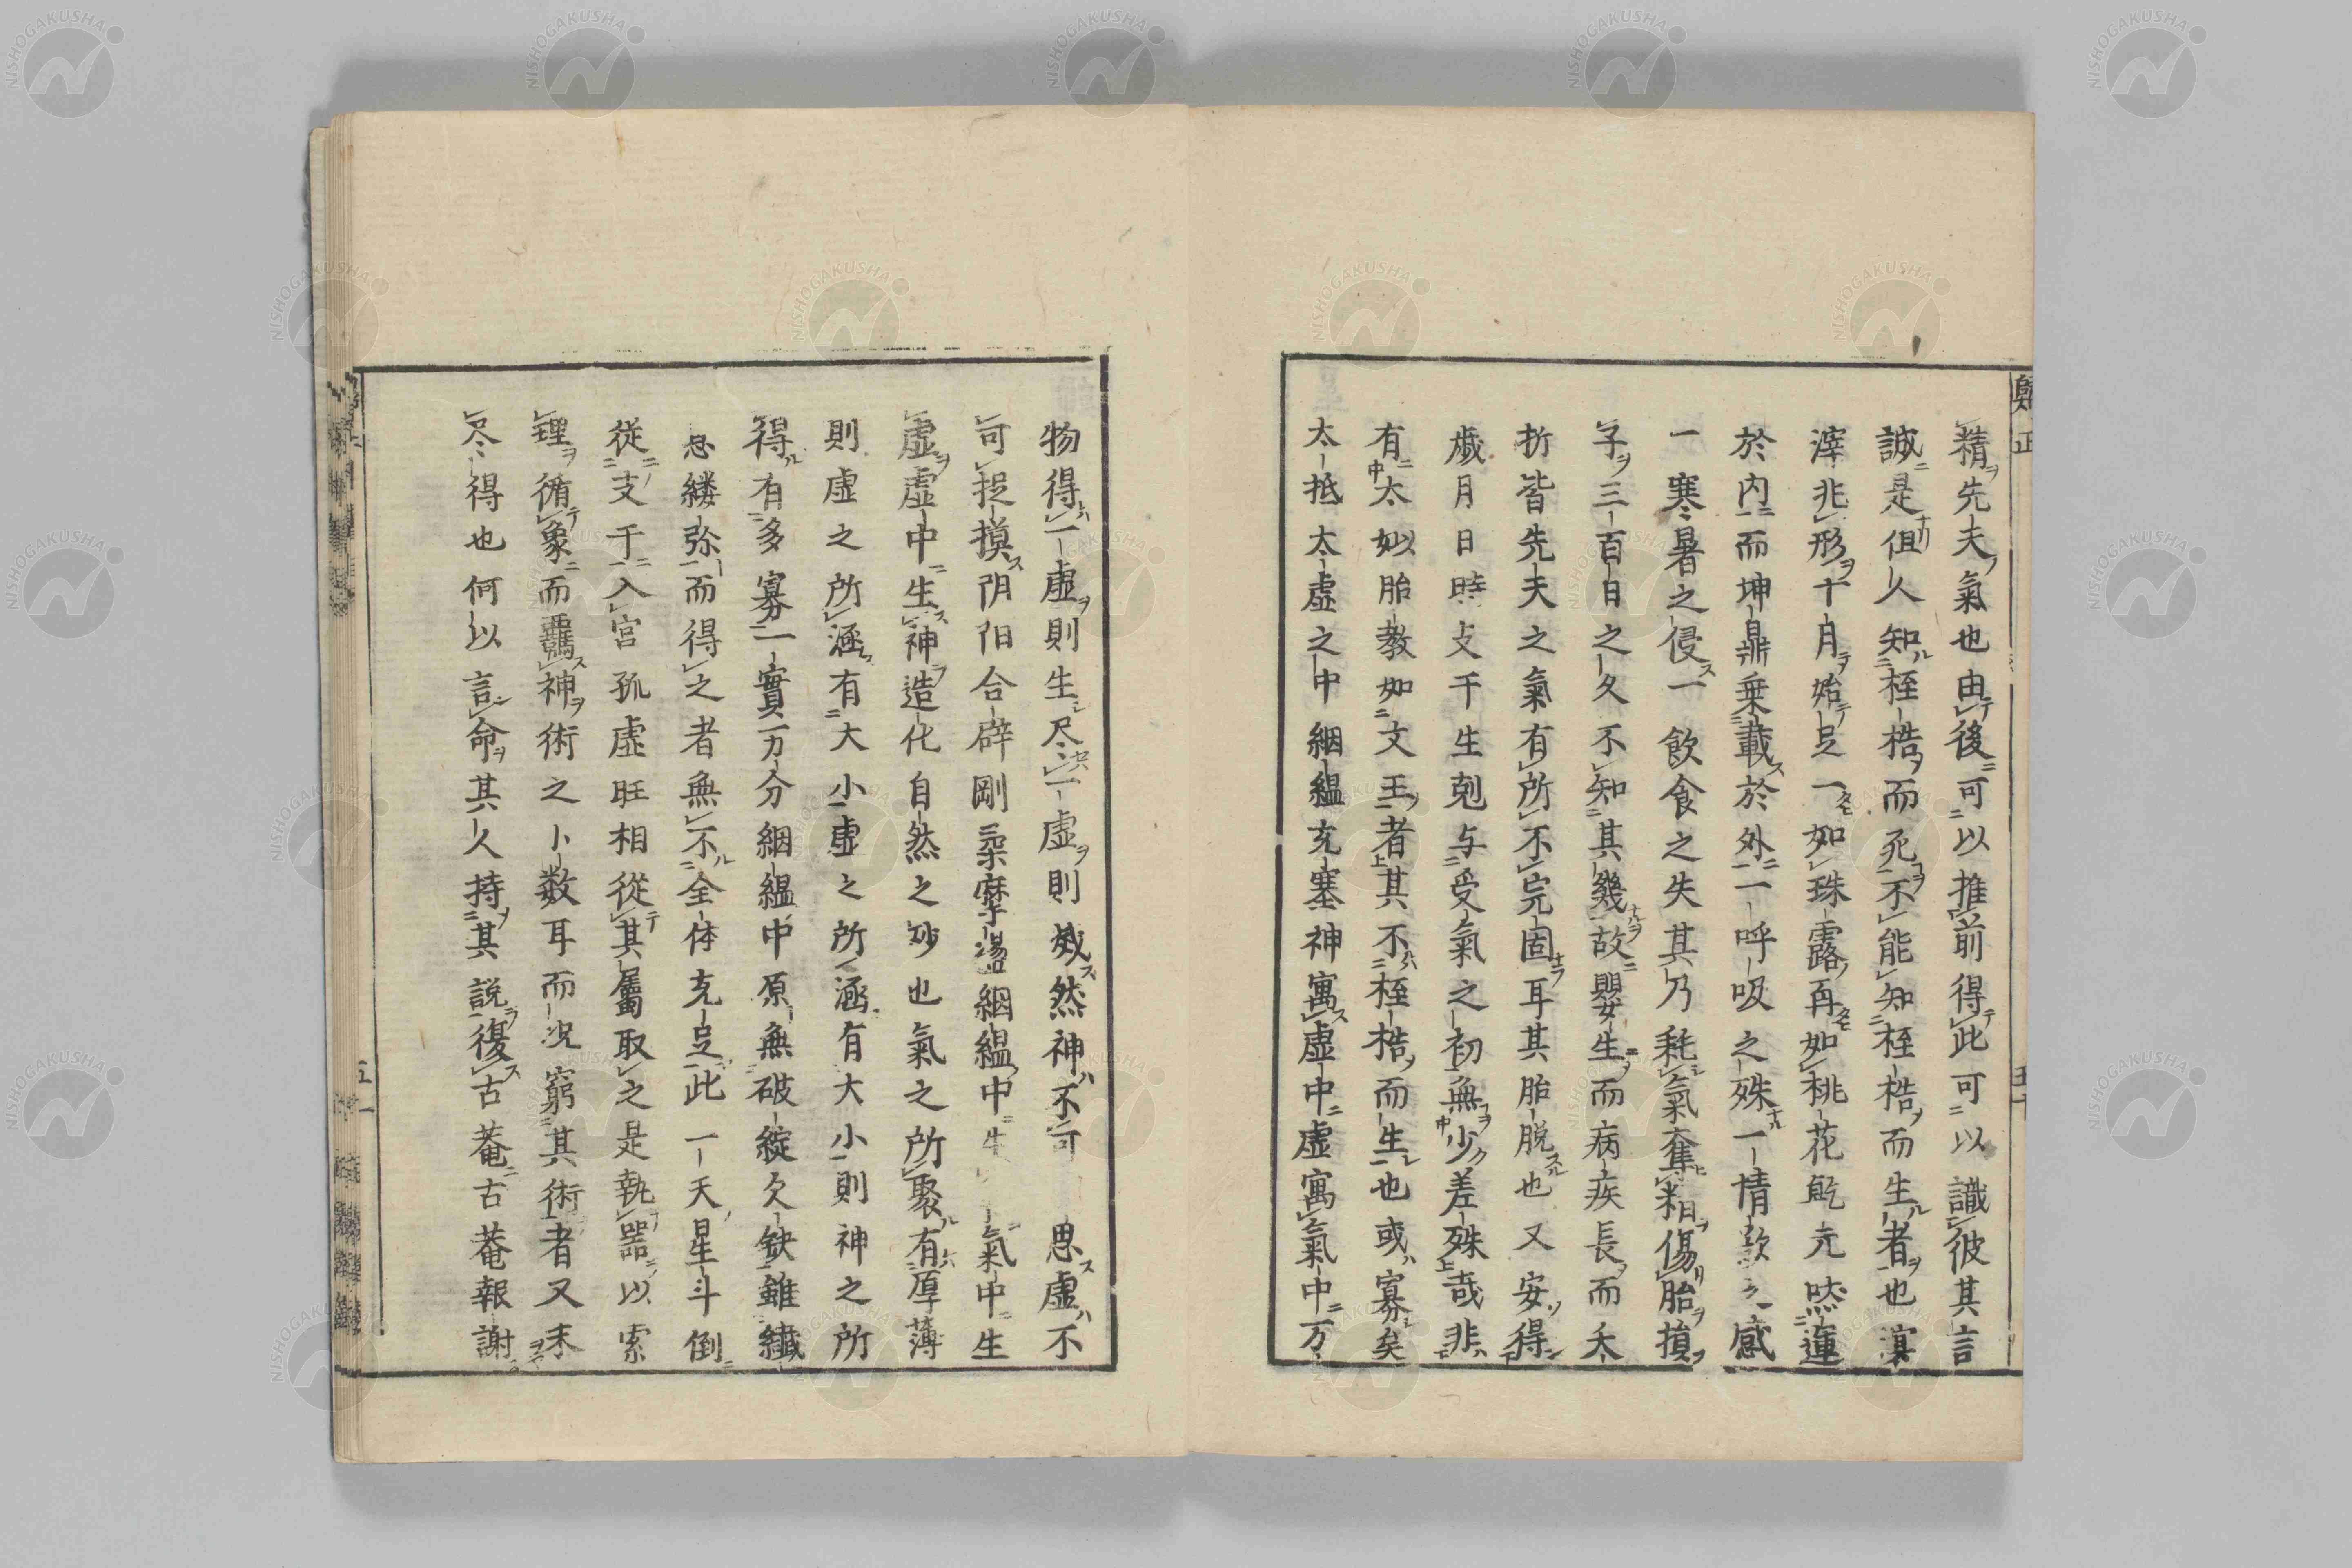 精先夫氣也由後可以推前得此可以識彼其言
誠是但人知桎梏而死不能知桎梏而生者也溟
滓兆形十月始足一如珠露再如桃花乾元喣蓮
於内而坤鼎乗載於外一呼一吸之殊一情歎之感
一寒暑之侵一飲食之失其乃耗氣奪精傷胎損
子三百日之久不知其幾故嬰生而病疾長而夭
折皆先夫之氣有所不完固耳其胎脱也又安得
歳月日時攴干生剋与受氣之初無少差殊哉非
有太妙胎教如文王者其不桎梏而生也或寡矣
太抵太虚之中絪緼充塞神寓虚中虚寓氣中万
物得一虚則生尽一虚則烕然神不可思虚不
可捉摸阴阳合辟剛柔摩盪絪緼中生氣中生
虚虚中生神造化自然之妙也氣之所聚有厚薄
則虚之所涵有大小虚之所涵有大小則神之所
得有多寡一實万分絪緼中原無破綻欠缺雖纎
忽縷弥而得之者無不全体充足此一天星斗倒
從支干入宮孤虚旺相從其屬取之是執器以索
理循象而龗神術之卜数耳而况窮其術者又未
尽得也何以言命其人持其説復古菴古菴報謝
歸正
五十
五一
NISHOGAKUSHA